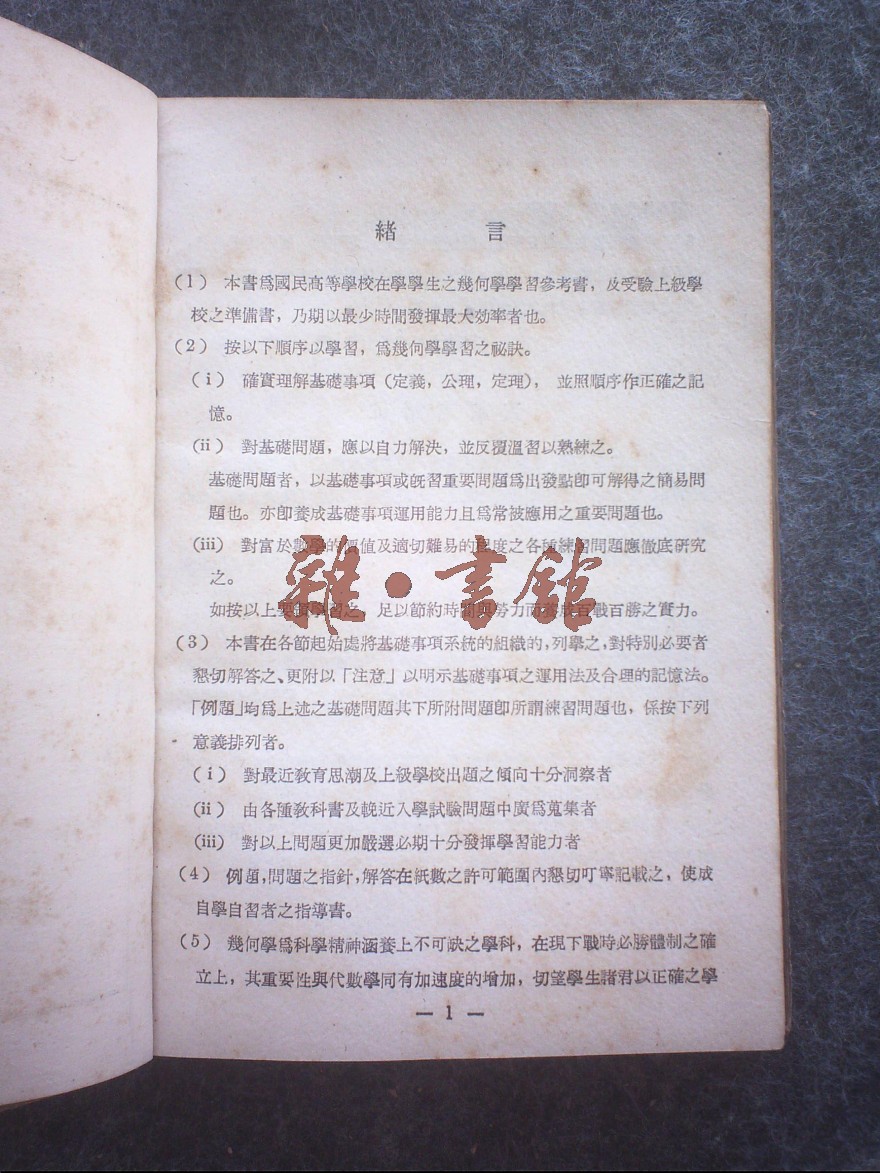 緒 言
(1) 本書爲國民高等學校在學學生之幾何學學習參考書，及受驗上級學
校之準備書，乃期以最少時間發揮最大効率者也。
(2) 按以下順序以學習，爲幾何學學習之祕訣。
(i) 確實理解基礎事項（定義，公理，定理），並照順序作正確之記
憶。
(ii) 對基礎問題，應以自力解決，並反覆溫習以熟練之。
基礎問題者，以基礎事項或旣習重要問題爲出發點卽可解得之簡易問
題也。亦卽養成基礎事項運用能力且爲常被應用之重要問題也。
(iii) 對富於數學的價值及適切難易的程度之各種練習問題應徹底研究
之。
如按以上要領學習之，足以節約時間與勞力而養成百戰百勝之實力。
雜·書館
(3) 本書在各節起始處將基礎事項系統的組織的，列擧之，對特別必要者
懇切解答之、更附以「注意」以明示基礎事項之運用法及合理的記憶法。
「例題」均爲上述之基礎問題其下所附問題卽所謂練習問題也，係按下列
意義排列者。
(i) 對最近敎育思潮及上級學校出題之傾向十分洞察者
(ii) 由各種敎科書及輓近入學試驗問題中廣爲蒐集者
(iii) 對以上問題更加嚴選必期十分發揮學習能力者
(4) 例題，問題之指針，解答在紙數之許可範圍內懇切叮寧記載之，使成
自學自習者之指導書。
(5) 幾何學爲科學精神涵養上不可缺之學科，在現下戰時必勝體制之確
立上，其重要性與代數學同有加速度的增加，切望學生諸君以正確之學
— 1 —